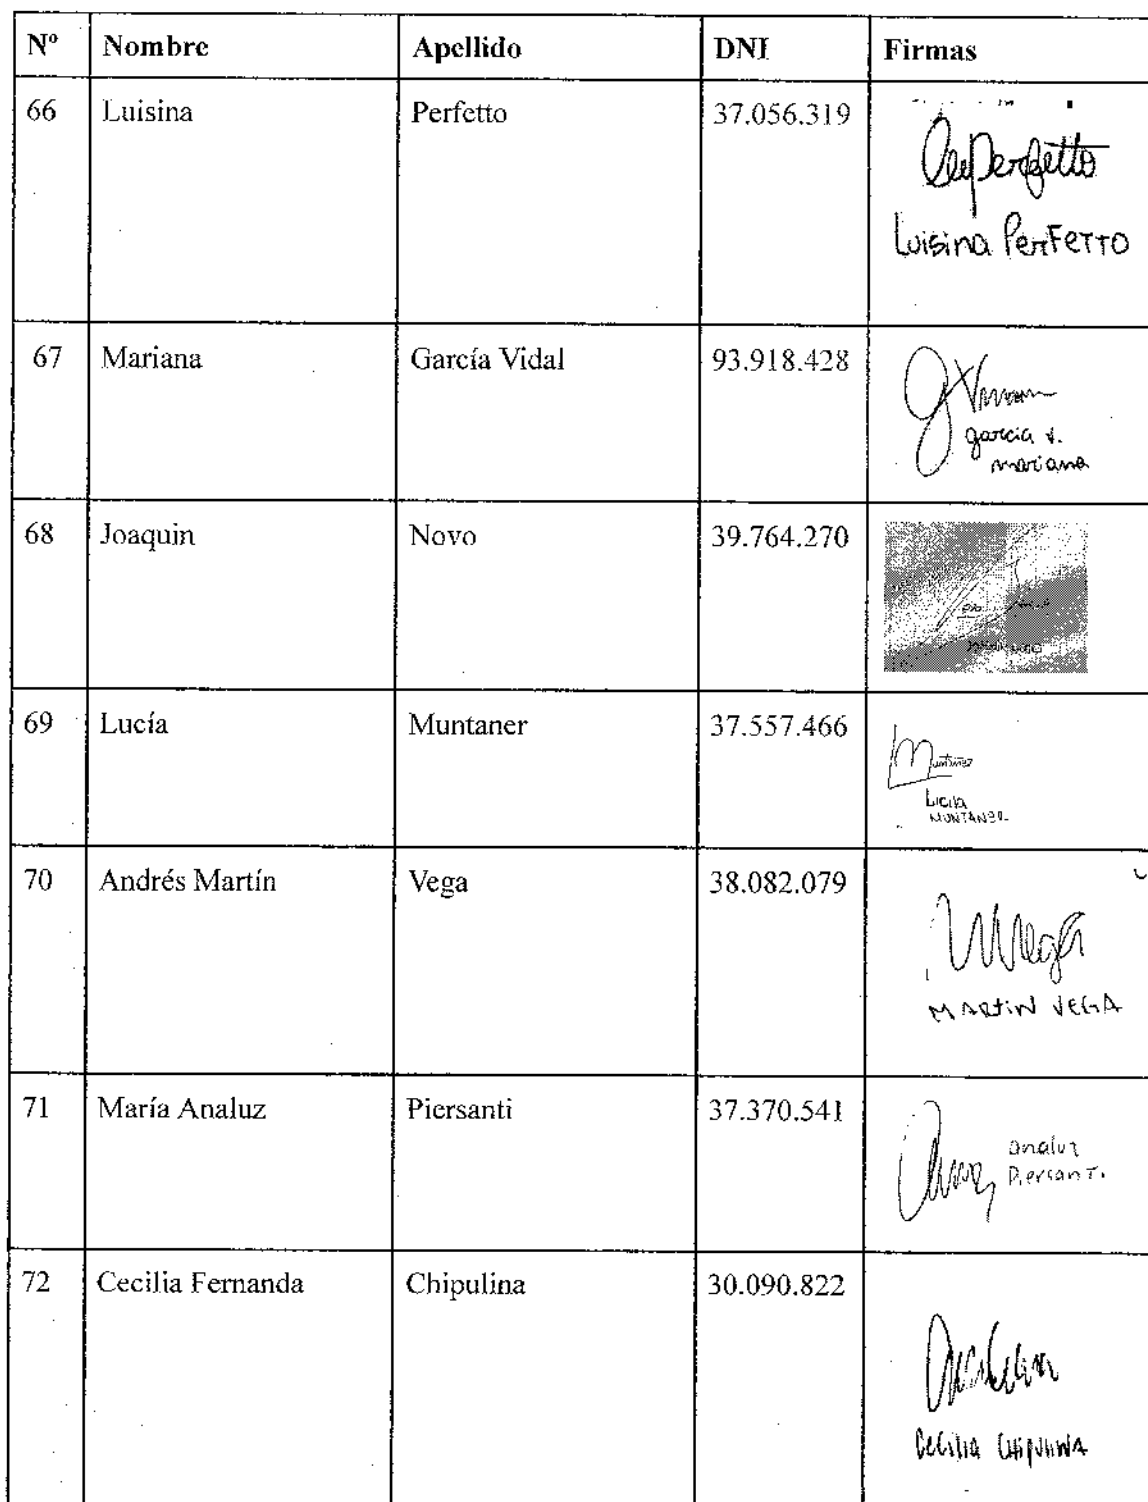 Nº Nombre Apellido DNI Firmas
66 Luisina Perfetto 37.056.319
Perfetto
Luisina Perfetto
67 Mariana García Vidal 93.918.428
garcia v.
mariana
68 Joaquin Novo 39.764.270
69 Lucía Muntaner 37.557.466
Muntaner
Lucila
MUNTANER
70 Andrés Martín Vega 38.082.079
Vega
MARTIN VEGA
71 María Analuz Piersanti 37.370.541
analuz
Piersanti
72 Cecilia Fernanda Chipulina 30.090.822
Cecilia CHIPULINA